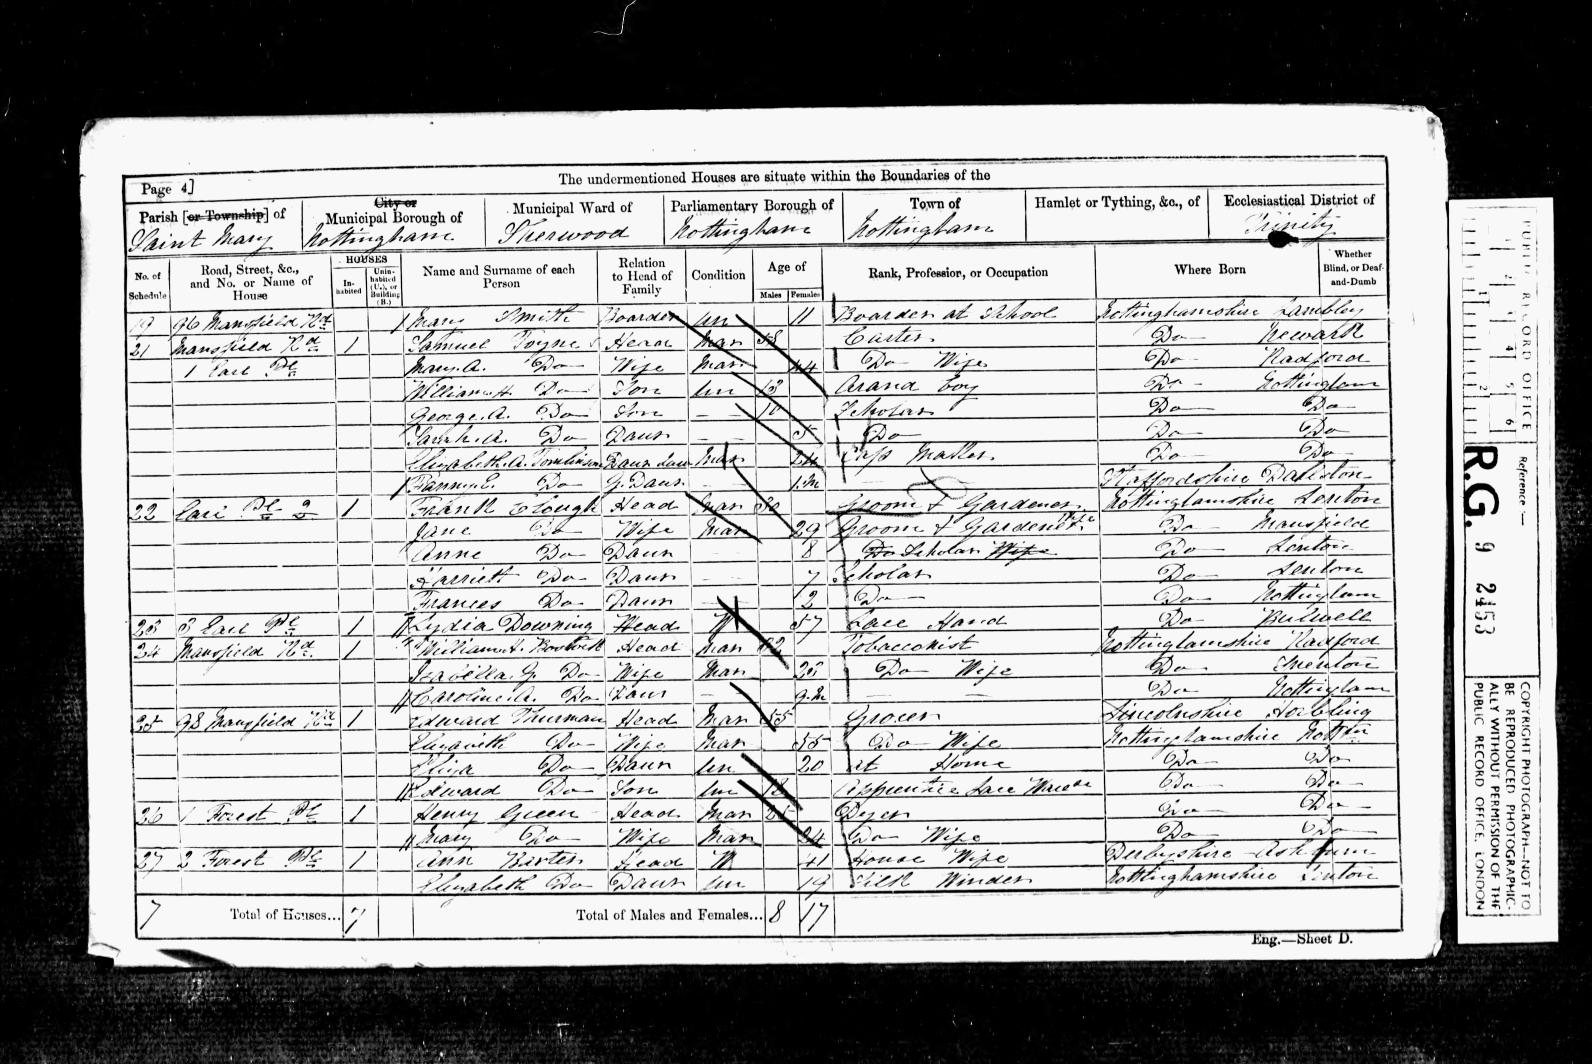 Page 4]
The undermentioned Houses are situate within the Boundaries of the
Parish [or Township] of
City or
Municipal Borough of
Municipal Ward of
Parliamentary Borough of
Town of
Hamlet or Tything, &c., of
Ecclesiastical District of
Saint Mary Nottingham Sherwood Nottingham Nottingham Trinity
No. of Schedule
Road, Street, &c., and No. or Name of House
HOUSES
In-habited
Unin-habited (U.), or Building (B.)
Name and Surname of each Person
Relation to Head of Family
Condition
Age of
Males Females
Rank, Profession, or Occupation
Where Born
Whether Blind, or Deaf-and-Dumb
19 96 Mansfield Rd Mary Smith Boarder Un 11 Boarder at School Nottinghamshire Lambley
21 Mansfield Rd 1 Samuel Toyne Head Mar 58 Carter Do Newark
1 Earl Pl Mary A. Do Wife Mar 44 Do Wife Do Radford
William H Do Son Un 13 Arand boy Do Nottingham
George A. Do Son 10 Scholar Do Do
Sarah A. Do Daur 5 Do Do Do
Elizabeth A. Tomlinson Daur Law Mar 24 Cap Maker Do Do
Fanny E. Do G. Daur 1.M Staffordshire
22 Earl Pl 2 1 Frank Clough Head Mar 30 Groom & Gardener Nottinghamshire Lenton
Jane Do Wife Mar 29 Groom & Gardener Wife Do Mansfield
Anne Do Daur 8 Do Scholar Wife Do Lenton
Harriett Do Daur 7 Scholar Do Lenton
Frances Do Daur 2 Do Do Nottingham
23 3 Earl Pl 1 Lydia Downing Head W 57 Lace Hand Do Bulwell
24 Mansfield Rd. 1 William H. Head Mar 32 Tobacconist Nottinghamshire Radford
Isabella G. Do Wife Mar 23 Do Wife Do
Caroline A. Do Daur 9.M Do Nottingham
25 98 Mansfield Rd 1 Edward Thurman Head Mar 55 Grocer Lincolnshire
Elizabeth Do Wife Mar 55 Do Wife Nottinghamshire Nottm
Eliza Do Daur Un 20 at Home Do Do
Edward Do Son Un 18 Apprentice Lace Do Do
26 1 Forest Pl 1 Henry Green Head Mar Dyer Do Do
Mary Do Wife Mar 24 Do Wife Do Do
27 2 Forest Pl 1 Ann Baxter Head W 41 House Wife Derbyshire
Elizabeth Do Daur Un 19 Silk Winder Nottinghamshire Lenton
7 Total of Houses... 7 Total of Males and Females... 8 17
Eng.—Sheet D.
PUBLIC RECORD OFFICE
1 2 4 5 6
Reference:—
R.G. 9 2453
COPYRIGHT PHOTOGRAPH—NOT TO
BE REPRODUCED PHOTOGRAPHIC-
ALLY WITHOUT PERMISSION OF THE
PUBLIC RECORD OFFICE, LONDON